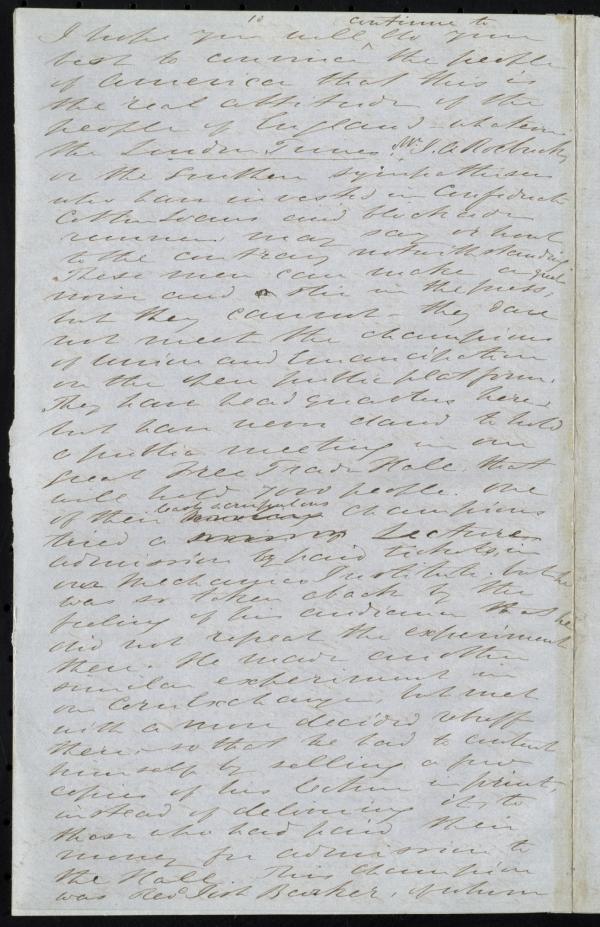 10 continue to
I hope you will do your
best to convince ^ the people
of America that this is
the real attitude of the
people of England whatever
the London Times, Mr. J. A. Roebuck,
or the Southern sympathisers
who have invested in Confederate
Cotton Loans and blockade
runners may say or hout
to the contrary notwithstanding
These men can make a great
noise and stir in the press,
but they cannot - they dare
not meet the champions
of Union and Emancipation
on the open public platform.
They have head quarters here,
but have never dared to hold
a public meeting in our
great Free Trade Hall, that
will hold 7000 people. One
of their champions
tried a Lecture
admission by paid tickets, in
our Mechanics Institute, but he
was so taken aback by the
feeling of his audience that he
did not repeat the experiment
there. He made another
similar experiment in
our Corn Exchange, but met
with a more decided rebuff
there, so that he had to content
himself by selling a few
copies of his lecture in print,
instead of delivering it, to
those who had paid their
money for admission to
the Hall. This champion
was Revd Josh Barker, of whom